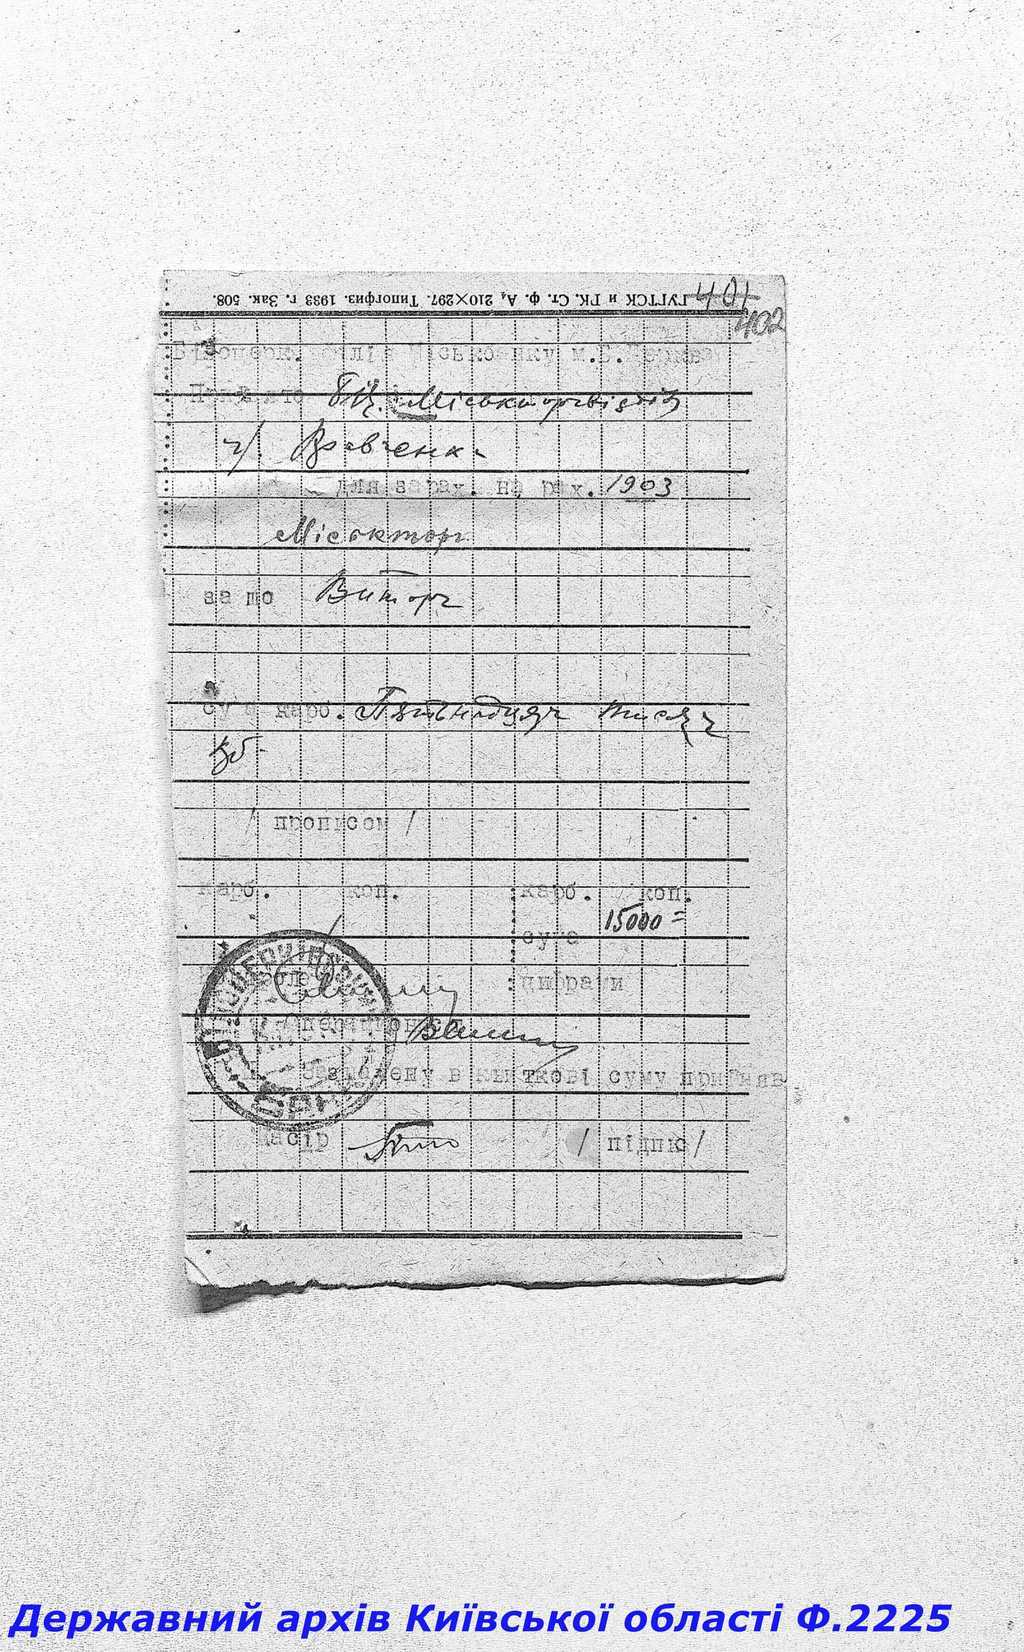 ГУГТСК и ГК. Ст. ф. А₄ 210×297. Типогфиз. 1933 г. Зак. 508.
401
402
м.Б.
БЦ. Міськторгвідділ
гр. Кравченка
для зарах. на рах. 1903
Міськторг
за що Виторг
карб. Пятьнадцять тисяч
крб.
/ прописом /
карб. коп. карб. коп.
15000=
сума
цифрами
БІЛОЦЕРКІВСЬКИЙ
БАНК
Зазначену в квиткові суму прийняв
Касір / підпис/
Державний архів Київської області Ф.2225